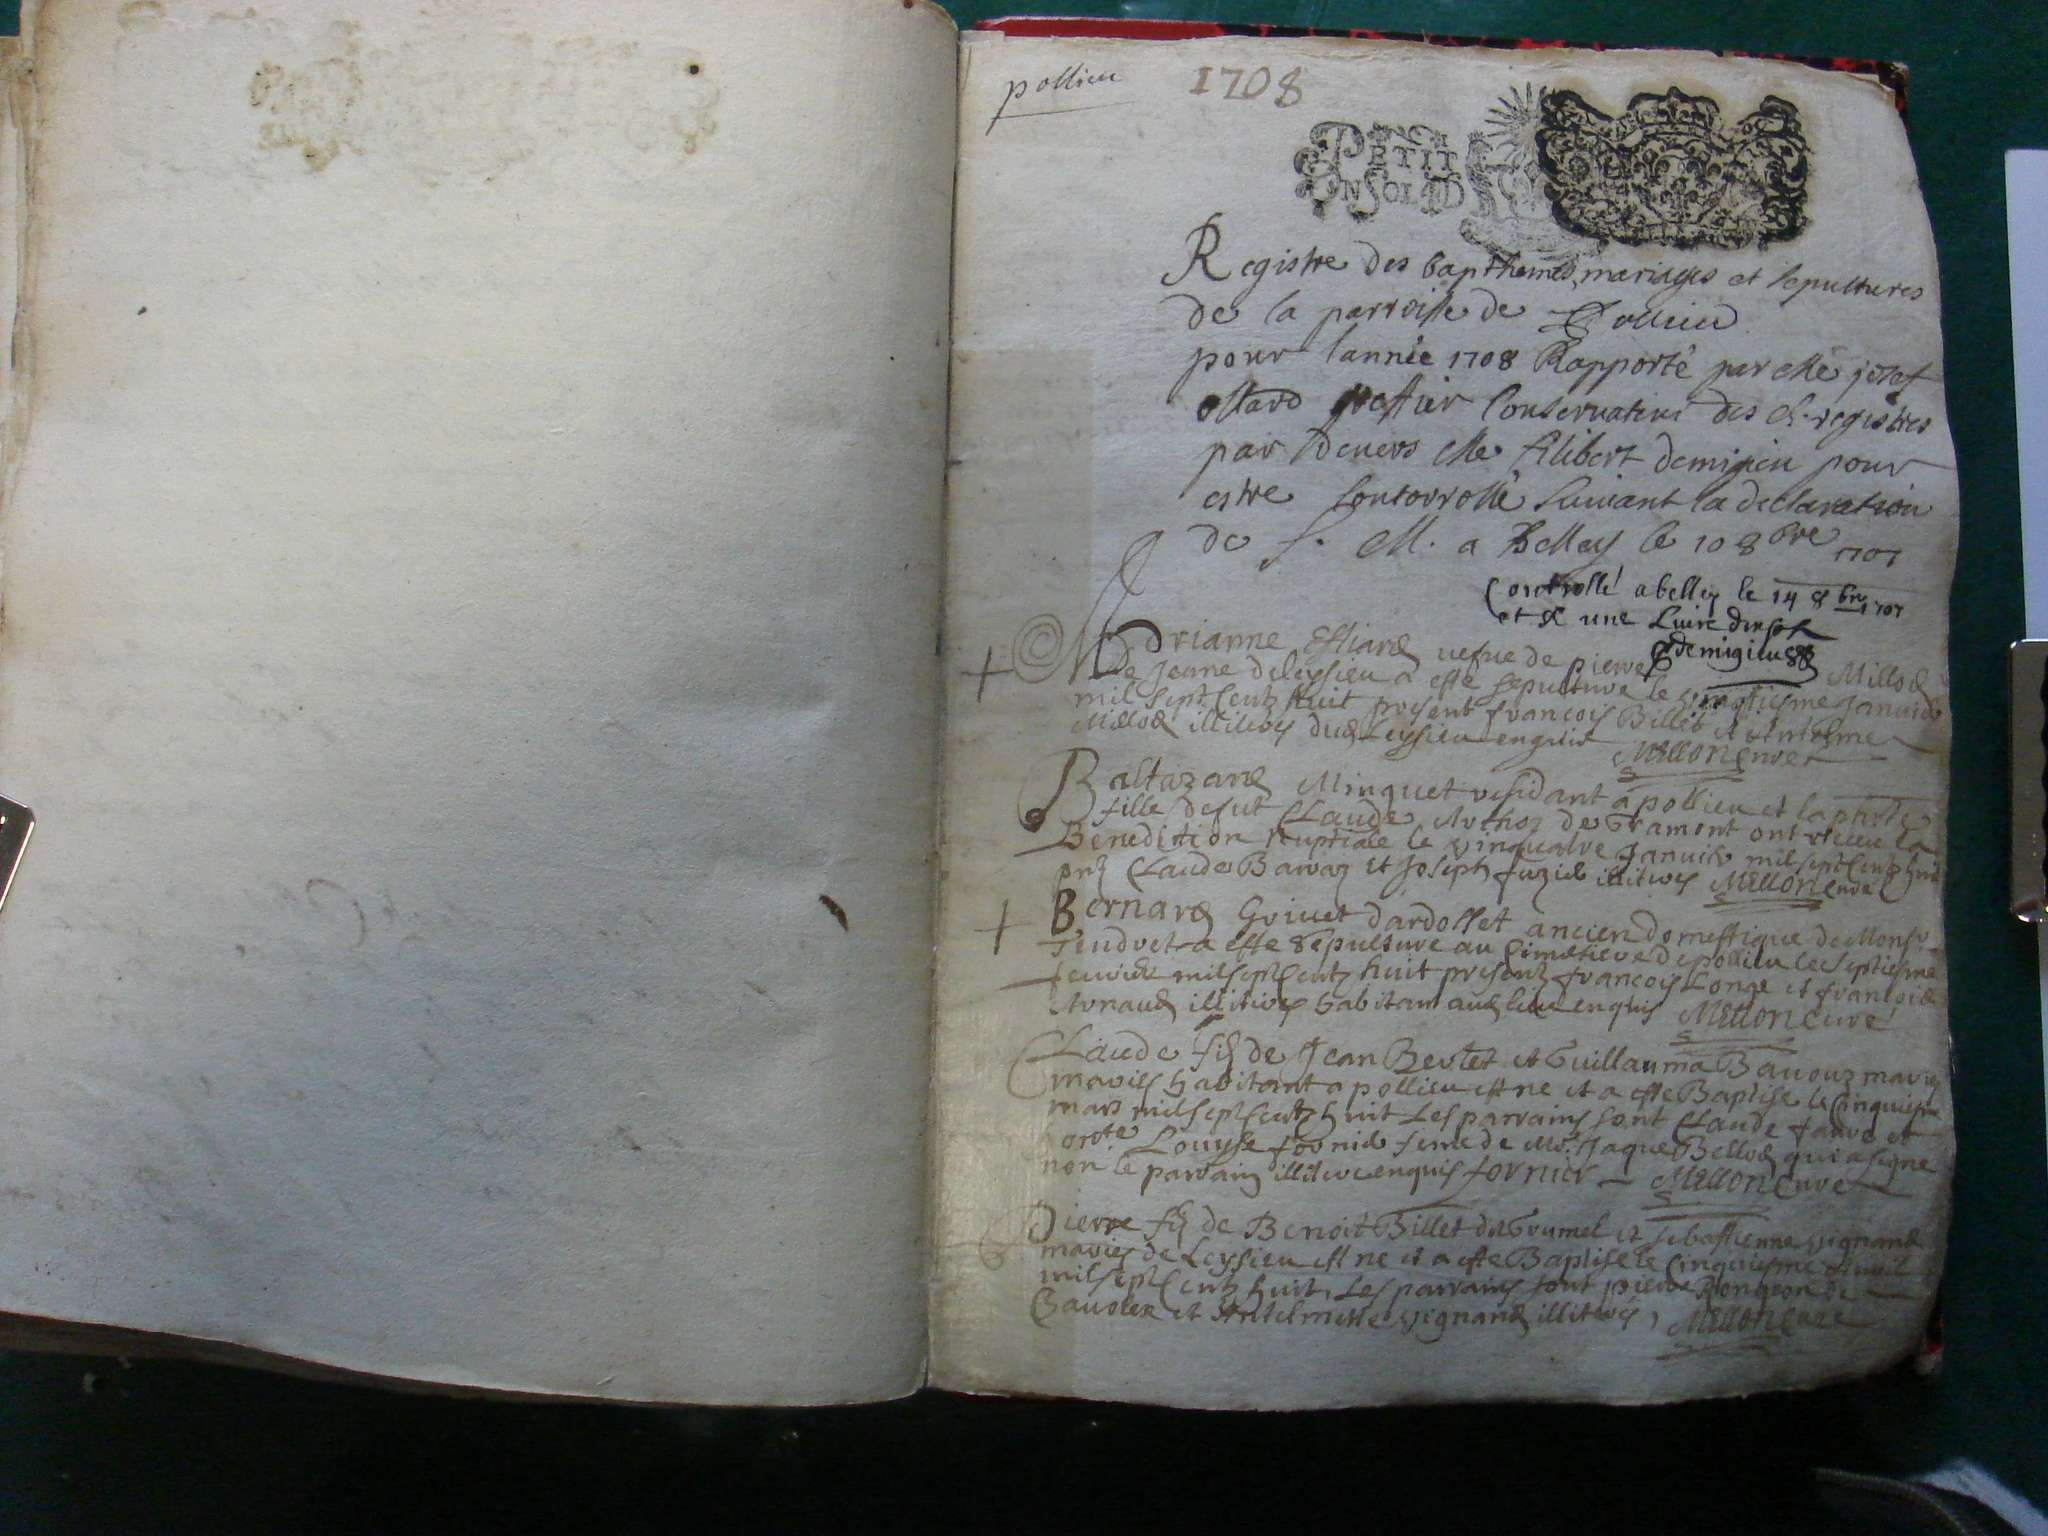 pollieu
1708
PETIT
UN SOL 4 D
Registre des bapthemes, mariages et sepultures
de la parroisse de Pollieu
pour lannée 1708 Rapporté par Me josef
ollard greffier Conservateur des d. registres
par devers Me filibert demigieu pour
estre Controrollé suivant la declaration
de S. M. a Belley le 10 8bre 1707
Controllé a belley le 14 8bre 1707
et R une Livre dix sols
Demigieu
Adrianne vefve de pierre Millod
de a esté sepulture le vingtiesme Janvier
mil sept Centz huit present francois Billet et Antelme
Millod illitires dud Leysieu enquis Mellon Curé
Baltazard Minquet residant a pollieu et
fille de fut Claude de Gramont ont receu la
Benediction Nuptiale le Janvier mil sept Centz huit
pntz Claude et Joseph illitires Mellon Curé
Bernard Grivet dardosset ancien domestique de Monsr
Tendret a esté sepulturé au Cimetiere de pollieu le septiesme
fevrier mil sept Centz huit presentz francois Longe et francois
illitires habitant aud lieu enquis Mellon Curé
Claude filz de Jean Berlet et Guillauma Bavouz mariez
mariez habitant a pollieu est ne et a esté Baptise le Cinquiesme
mars mil sept Centz huit Les parrains sont Claude favre et
Louyse fornier feme de Mr Jaque Bellod qui a signe
non le parrain illitire enquis fornier Mellon Curé
Pierre filz de Benoit Billet dit Grumel et Sebastienne vignand
mariez de Leysieu est ne et a esté Baptise le Cinquiesme Avril
mil sept Centz huit, Les parrains sont pierre Rongeon de
et Antelmette vignand illitires, Mellon Curé